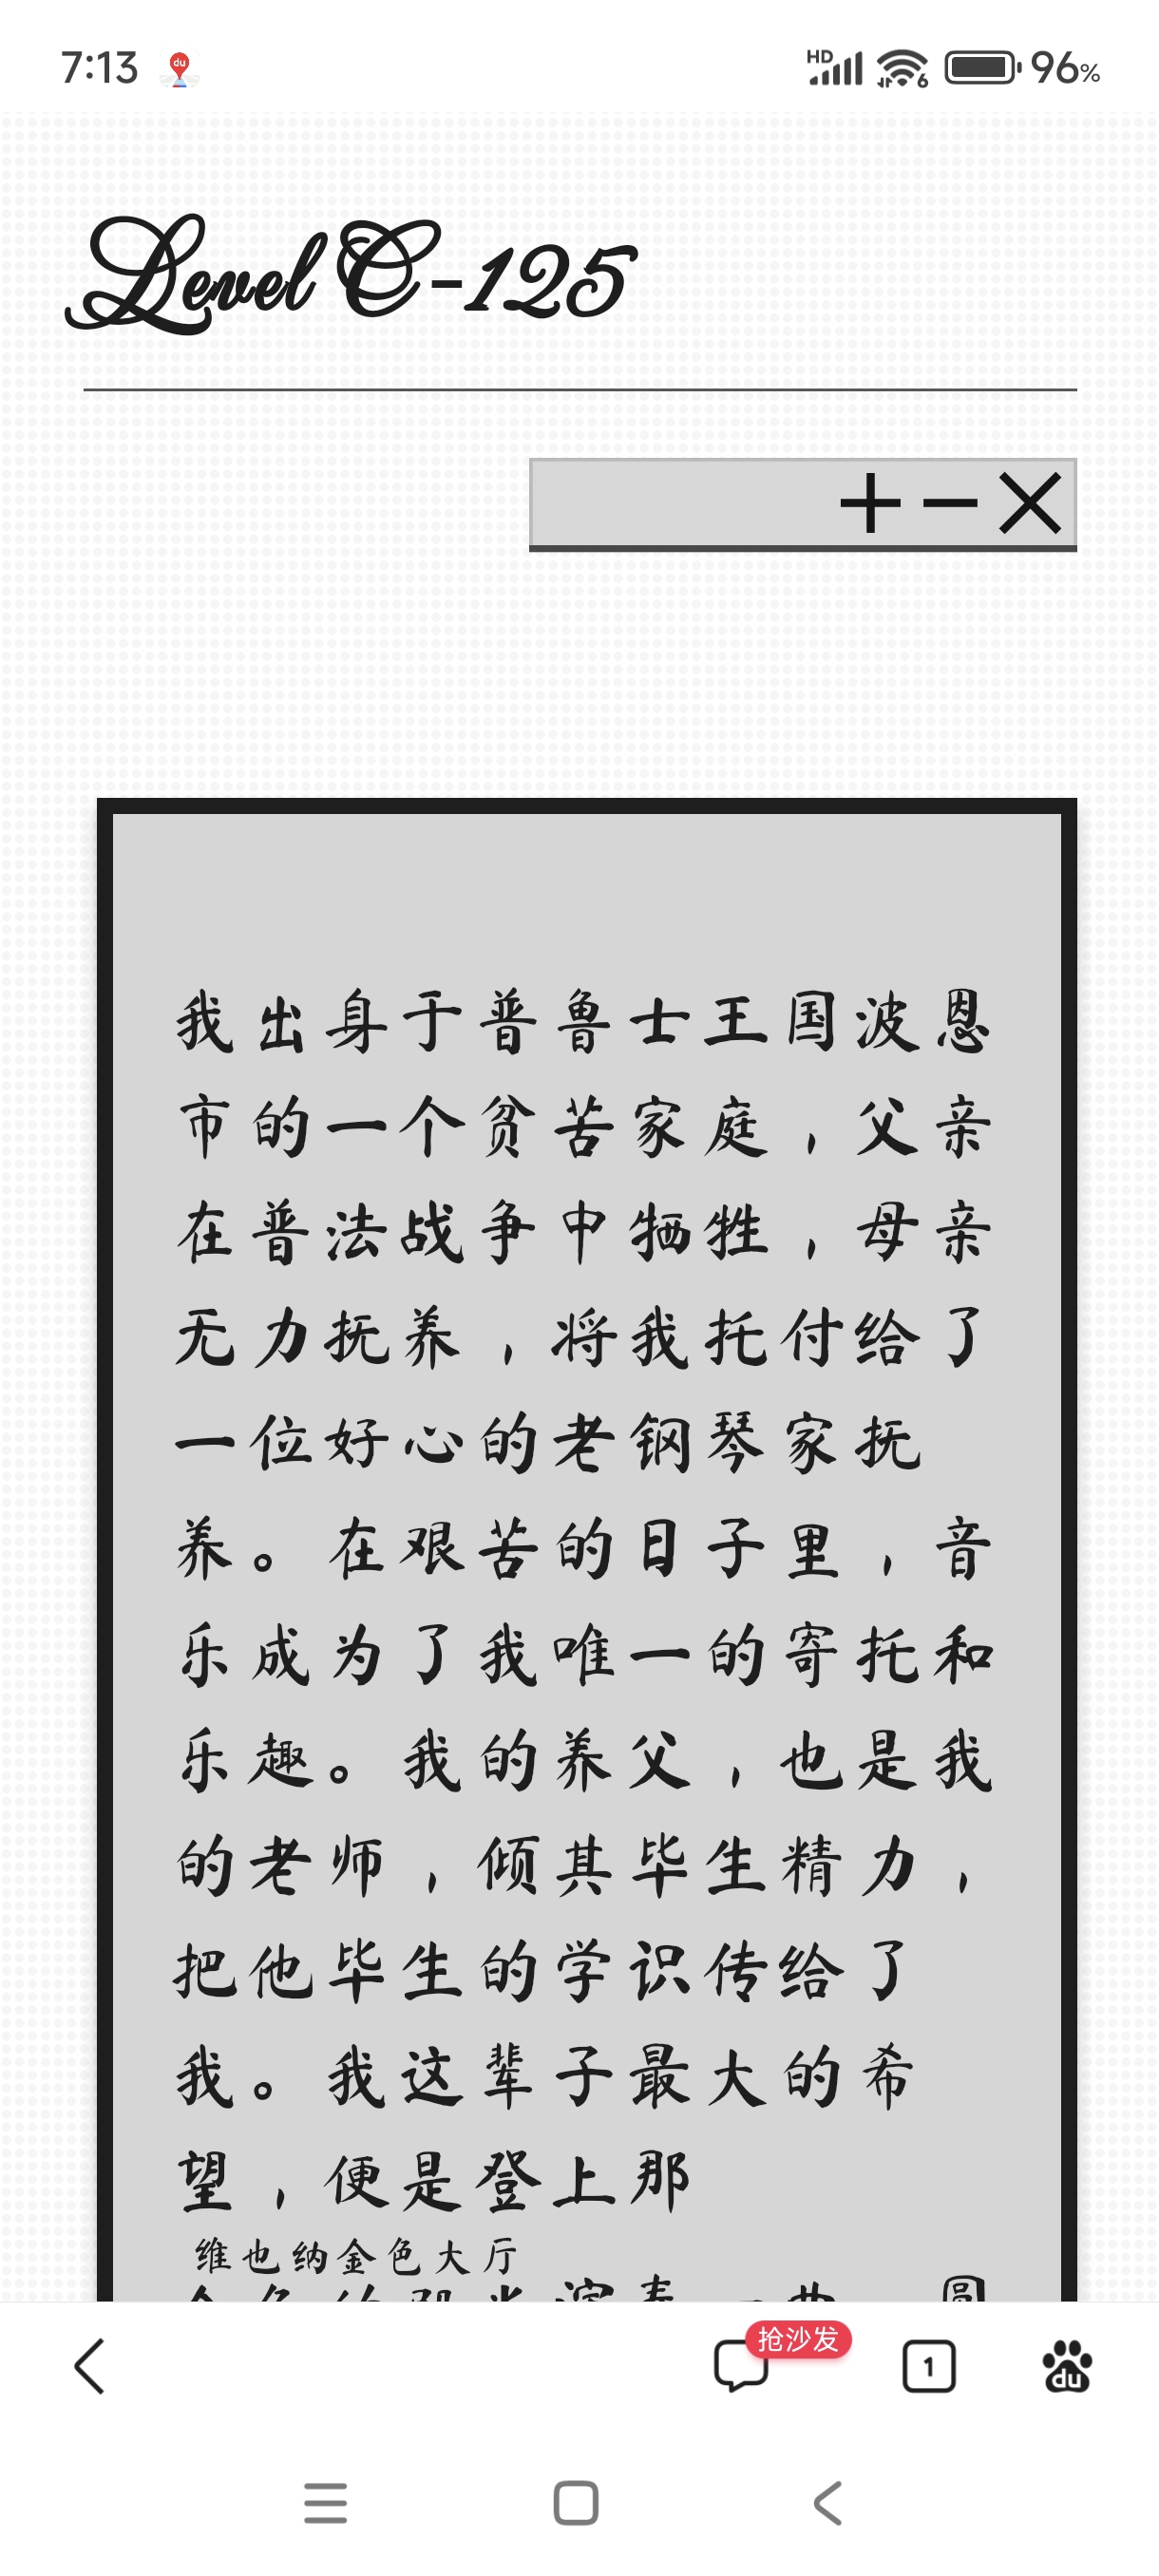 7:13
HD
6
96%
Level C-125
我出身于普鲁士王国波恩
市的一个贫苦家庭，父亲
在普法战争中牺牲，母亲
无力抚养，将我托付给了
一位好心的老钢琴家抚
养。在艰苦的日子里，音
乐成为了我唯一的寄托和
乐趣。我的养父，也是我
的老师，倾其毕生精力，
把他毕生的学识传给了
我。我这辈子最大的希
望，便是登上那
维也纳金色大厅
抢沙发
1
du